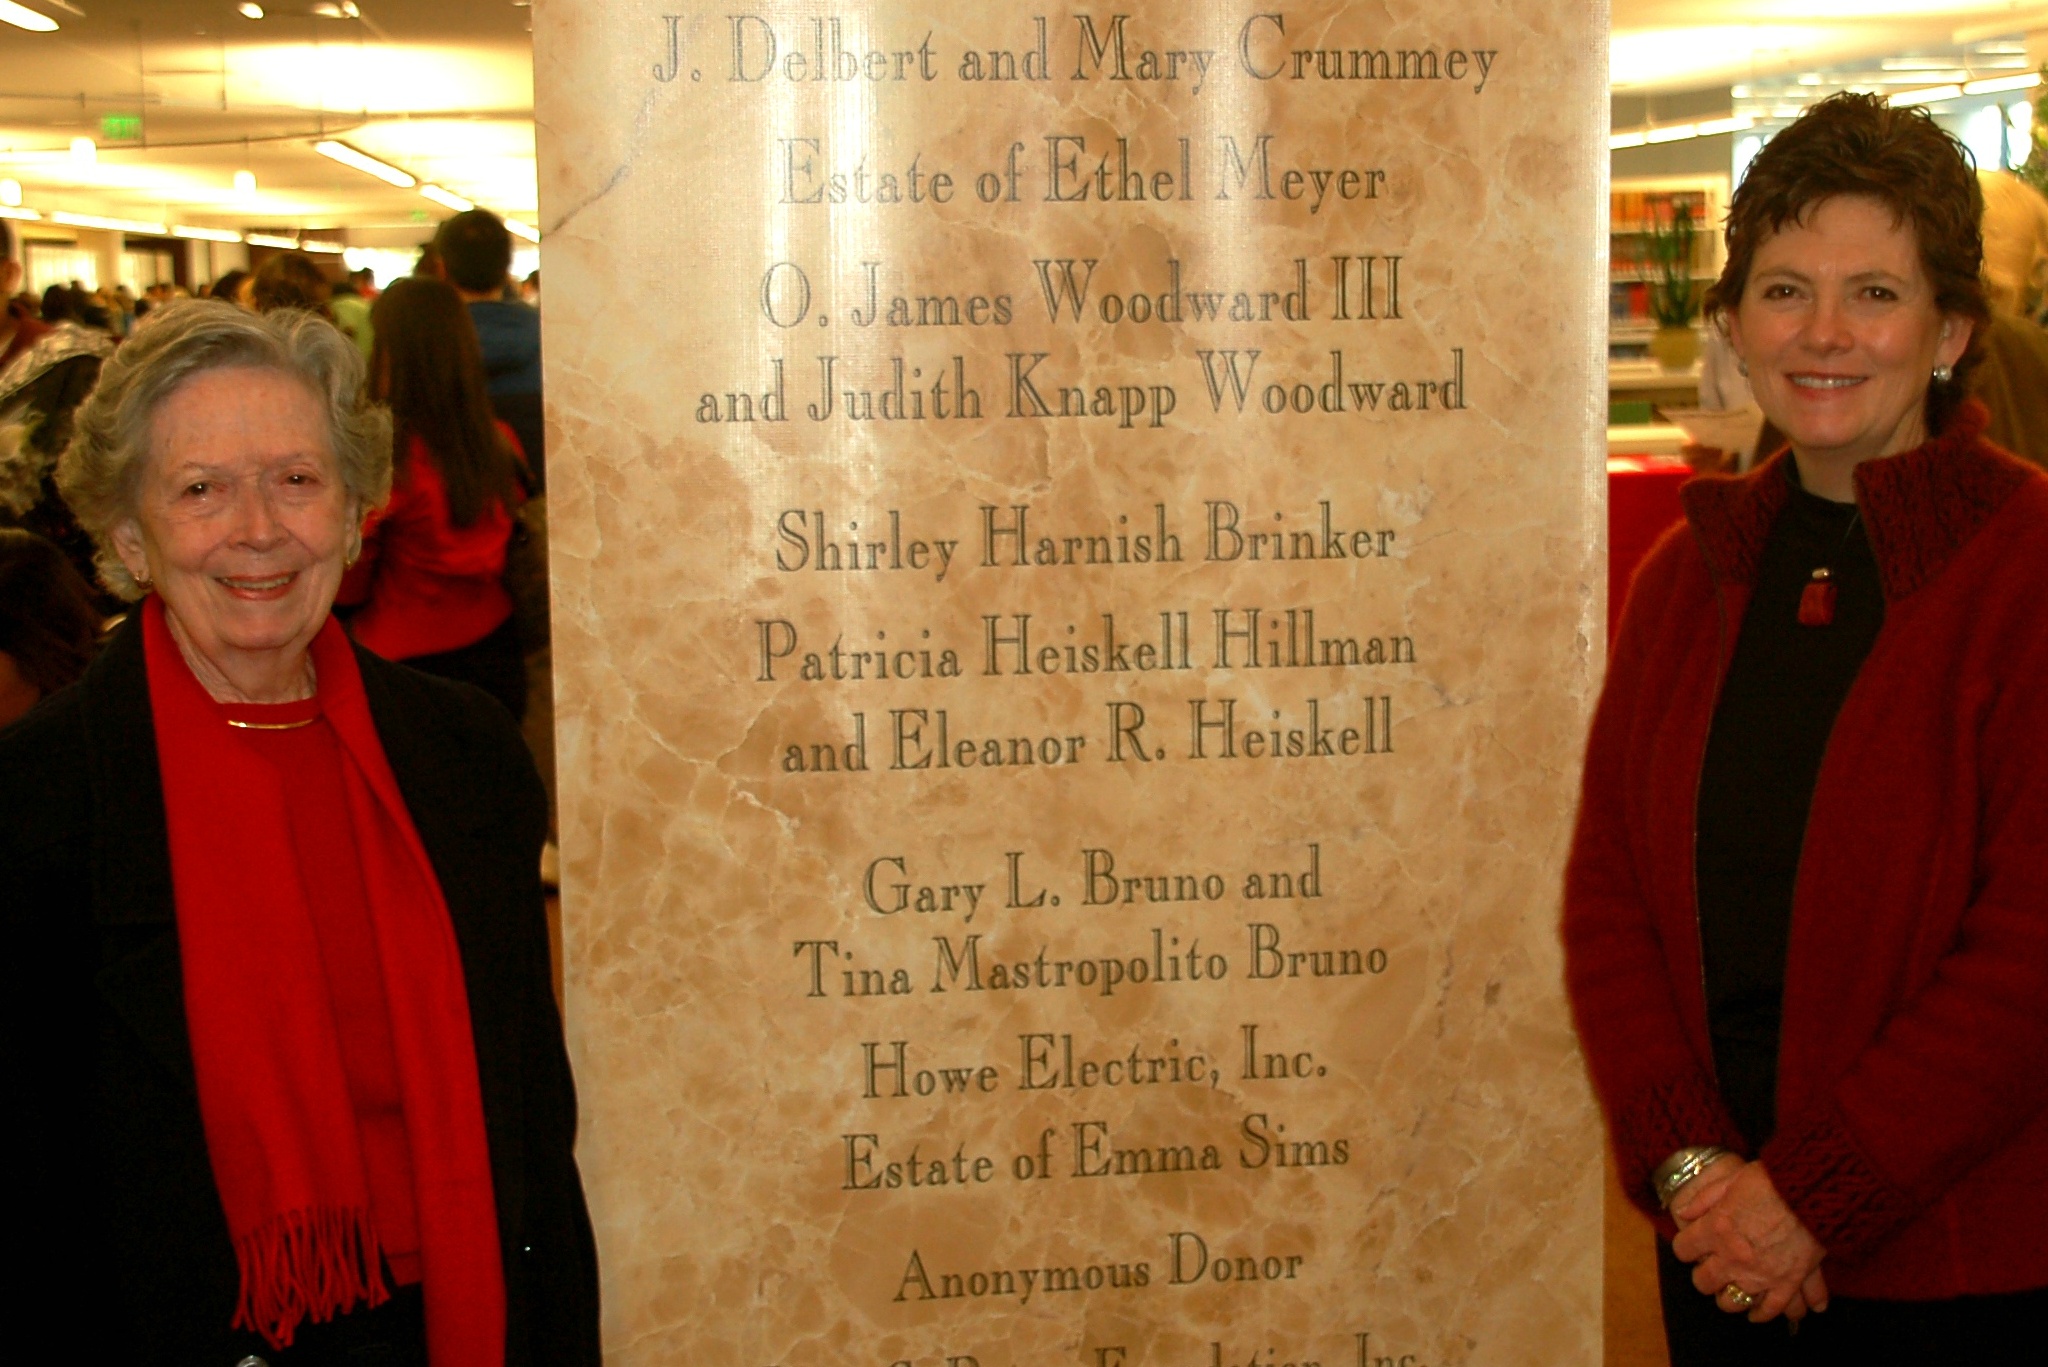 EXIT
J. Delbert and Mary Crummey
Estate of Ethel Meyer
O. James Woodward III
and Judith Knapp Woodward
Shirley Harnish Brinker
Patricia Heiskell Hillman
and Eleanor R. Heiskell
Gary L. Bruno and
Tina Mastropolito Bruno
Howe Electric, Inc.
Estate of Emma Sims
Anonymous Donor
Foundation, Inc.